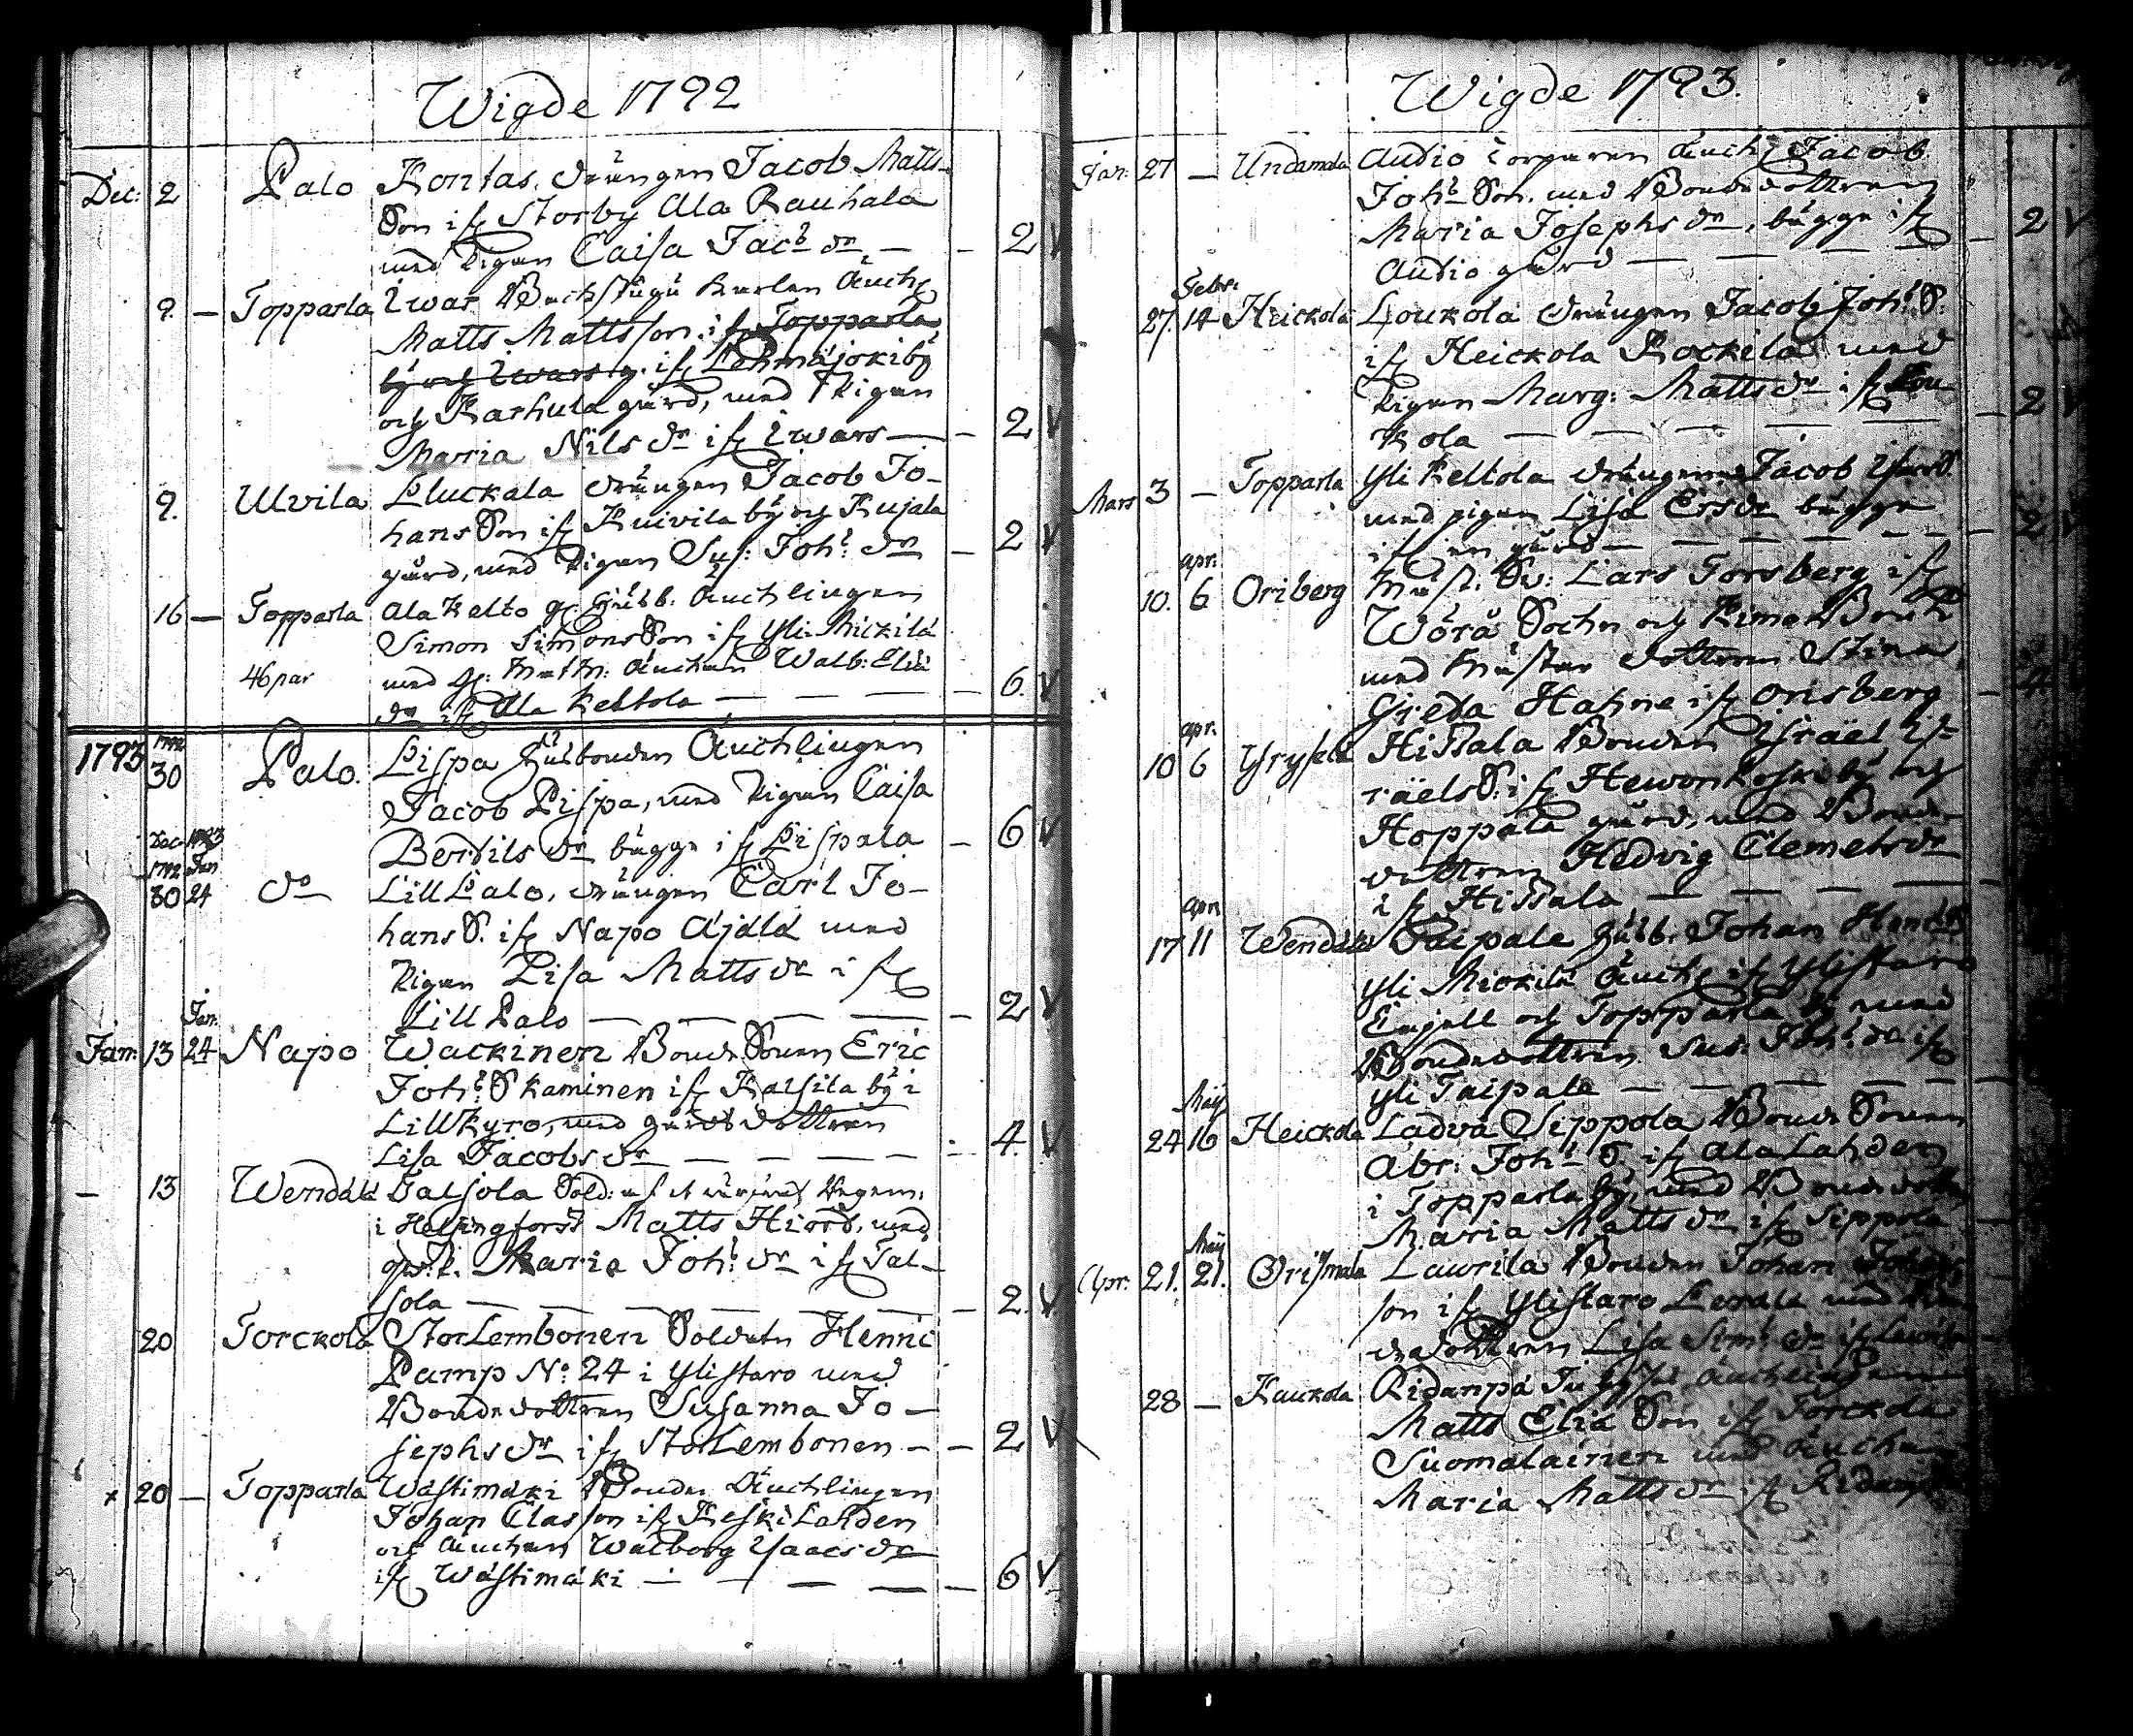 Wigde 1792
Dec: 2 Palo Kontas, drängen Jacob Matts-
Son ifr Storby Ala Rauhala
med Pigan Caisa Jacb dr — — 2 V
9. — Topparla Iwar Backstugu Karlen Änchl
Matts Mattsson ifr Topparla
by och Iwars g. ifr Lehmäjoki by
och Karhula gård, med Pigan
Maria Nils dr ifr Iwars — — 2 V
9. Ulvila Pluckala drängen Jacob Jo-
hans Son ifr Kuivila by och Kujala
gård, med Pigan Sus: Joh: dr — 2 V
16 — Topparla Ala Kelto g. Husb: Änchlingen
Simon Simons Son ifr Yli Mickilä
46 par med Änchan Walb: Eliä
dr ifr Ala Keltola — — — — 6. V
1793 1792 30 Palo. Pispa Husbonden Änchlingen
Jacob Pispa, med Pigan Caisa
Bertils dr bägge ifr Pispala — 6 V
Dec. 1793
1792 Jan
30 24 do Lill Palo, drängen Carl Jo-
hans S. ifr Napo Äjälä med
Pigan Lisa Matts dr ifr
Lill Palo — — — — — 2 V
Jan:
Jan: 13 24 Napo Wackinen Bonde Sonen Eric
Joh: S Kaminen ifr Kalsila by i
Lillkyro, med gårds dottren
Lisa Jacobs dr — — — — — 4. V
— 13 Wendälä Talsola Sold:
i Helsingfors Matts Hiord, med
Maria Joh: dr ifr Tal-
sola — — — — — — 2. V
20 Torckola StorLembonen Soldaten Henric
Pamp No: 24 i Ylistaro med
Bondedottren Susanna Jo-
sephs dr ifr StorLembonen — — 2 V
x 20 — Topparla Wästimäki Bonden Änchlingen
Johan Classon ifr KeskiLahden
och Änchan Walborg Isaacs dr
ifr Wästimäki — — — — — 6 V
Wigde 1793.
Jan: 27 — Undamala Audio Änchl Jacob
Joh: Son. med Bondedottren
Maria Josephs dr, bägge ifr — 2 V
Audio gård — — — —
Febr:
27. 14 Heickola Loukola drängen Jacob Joh: S.
ifr Heickola Kockila med
Pigan Marg: Matts dr ifr Lou-
kola — — — — — — 2 V
Mars 3 — Topparla Yli Keltola drängen Jacob
med pigan Lisa Ers dr bägge
ifr en gård — — — — — 2 V
apr:
10. 6 Oriberg Mäst: Sv: Lars Forsberg ifr
Wörå Sochn och Kimo Bruk
med Mästar dottren Stina
Greta Hahne ifr Orisberg —
apr:
10 6 Yryselä Hissala Bonden Israël Is-
raëls S: ifr Hewonkoski by och
Hoppala gård, med Bonde-
dottren Hedvig Clemets dr
ifr Hissala — — — — —
apr
17 11 Wendälä Taipale Husb: Johan
Yli Mickilä Änchl ifr Ylistaro
och Topparla by med
Bondedottren Sus: Joh: dr ifr
Yli Taipale — — — — — —
Maij
24 16 Heickola Ladva Sippola Bonde Sonen
Abr: Joh: S. ifr Ala Lahden
i Topparla by, med Bonde
Maria Matts dr ifr Sippola
Maij
Apr: 21. 21. Orismala Laurila Bonden Johan
son ifr Ylistaro med
dottren Lisa Sim: dr ifr
28 — Kaukola Ridanpä Änchlingen
Matts Eliä Son ifr Torckola
Suomalainen med Änchan
Maria Matts dr ifr